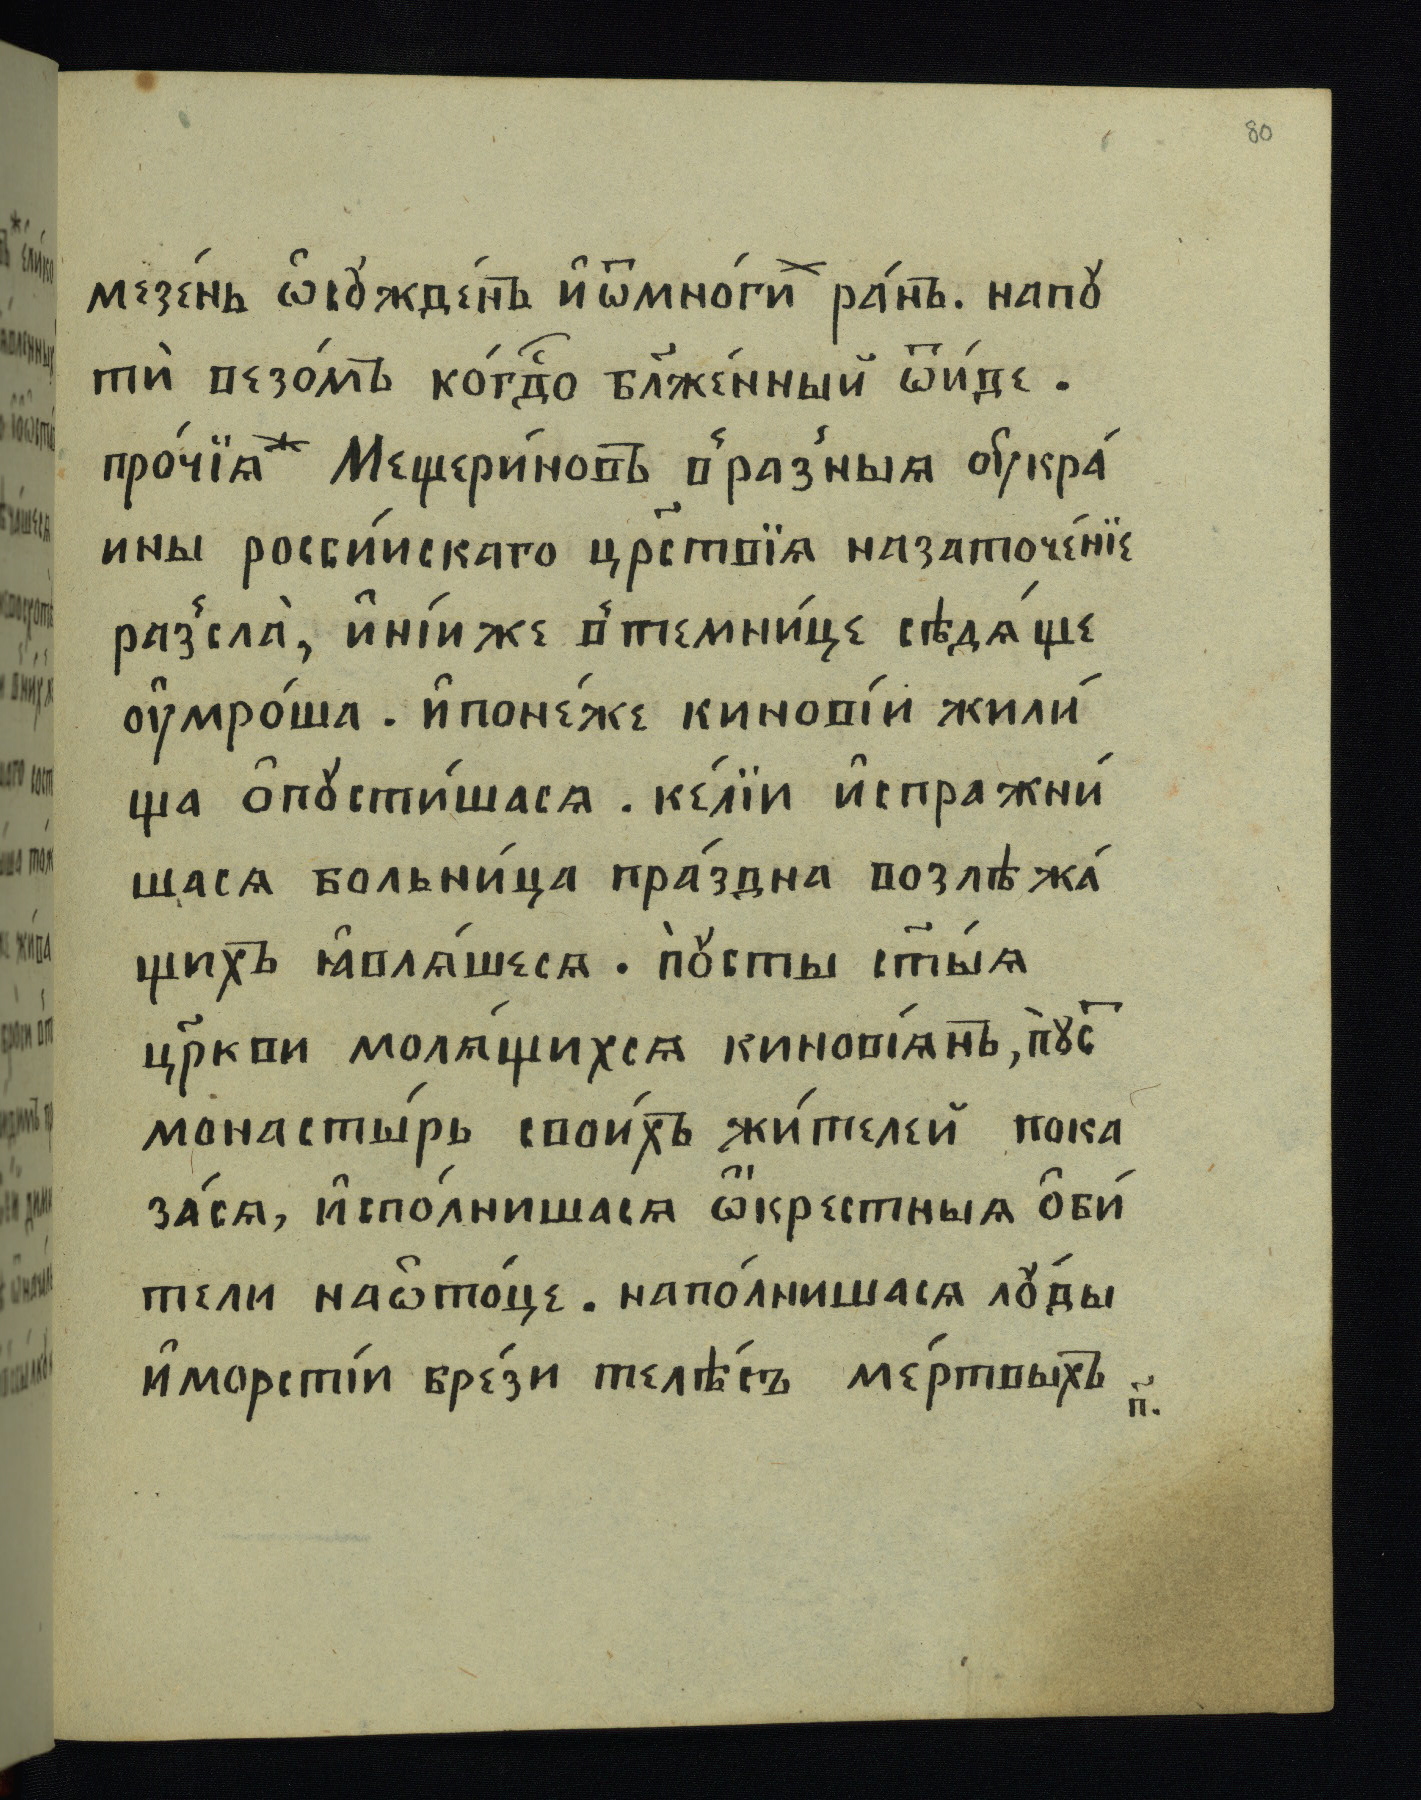 80
мезе́нь ѡ҆сꙋжде́нъ и҆ ѿмно́гихъ ра́нъ. напꙋ
тѝ везо́мъ ко́гдⷭ҇о бл҃же́нный ѿи́де.
про́чїѧ Мещери́новъ в̾раз̾ныѧ ѹ҆кра́
ины россі́искаго црⷭ҇твїѧ назаточе́нїе
раз̾сла̀, и҆ні́и же в̾темни́це сѣдѧ́ще
ѹ҆мро́ша. и҆поне́же киновїи жили́
ща ѻ҆пꙋсти́шасѧ. ке́лїи и҆спражни́
шасѧ больни́ца пра́здна возлѣжа́
щихъ ꙗ҆влѧ́шесѧ. пꙋ̀сты ст҃ы́ѧ
цр҃кви молѧ́щихсѧ киновїѧ́нъ, пꙋ̀стъ
монасты́рь свои́хъ жи́телей пока
за́сѧ, и҆спо́лнишасѧ ѡ҆̀крестныѧ ѻ҆би́
тели наѡ҆то́це. напо́лнишасѧ лꙋ́ды
и҆морсті́и бре́зи телѣ́съ ме́ртвыхъ
п҃.